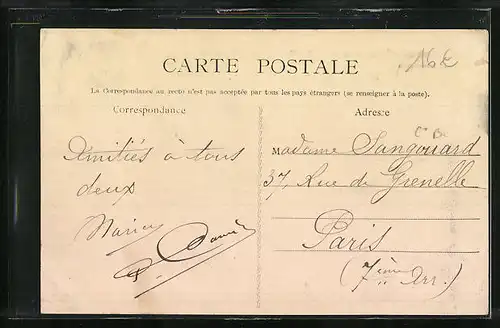 16€
CARTE POSTALE
La Correspondance au recto n'est pas acceptée par tous les pays étrangers (se renseigner à la poste).
Correspondance
Adresse
Amitiés à tous
deux
Madame Sangouard
37, Rue de Grenelle
Paris
(7ième Arr.)